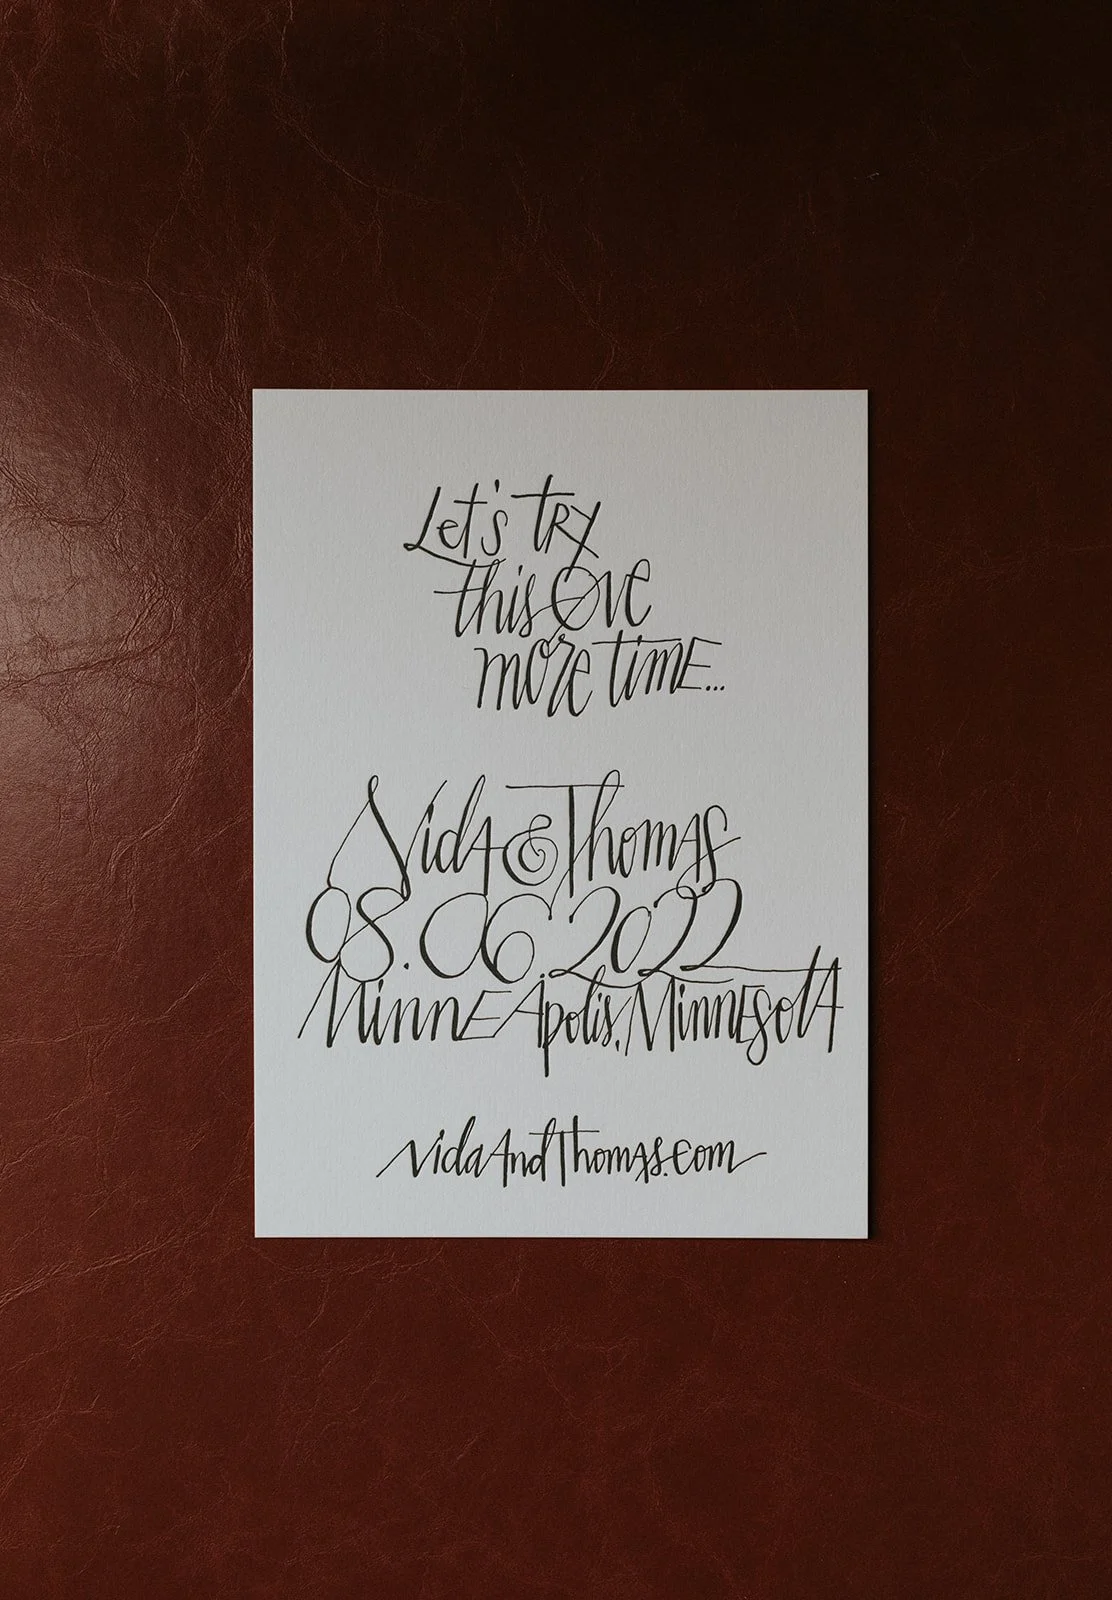 Let's try
this one
more time...
Nida & Thomas
08.06.2022
Minneapolis, Minnesota
NidaAndThomas.com